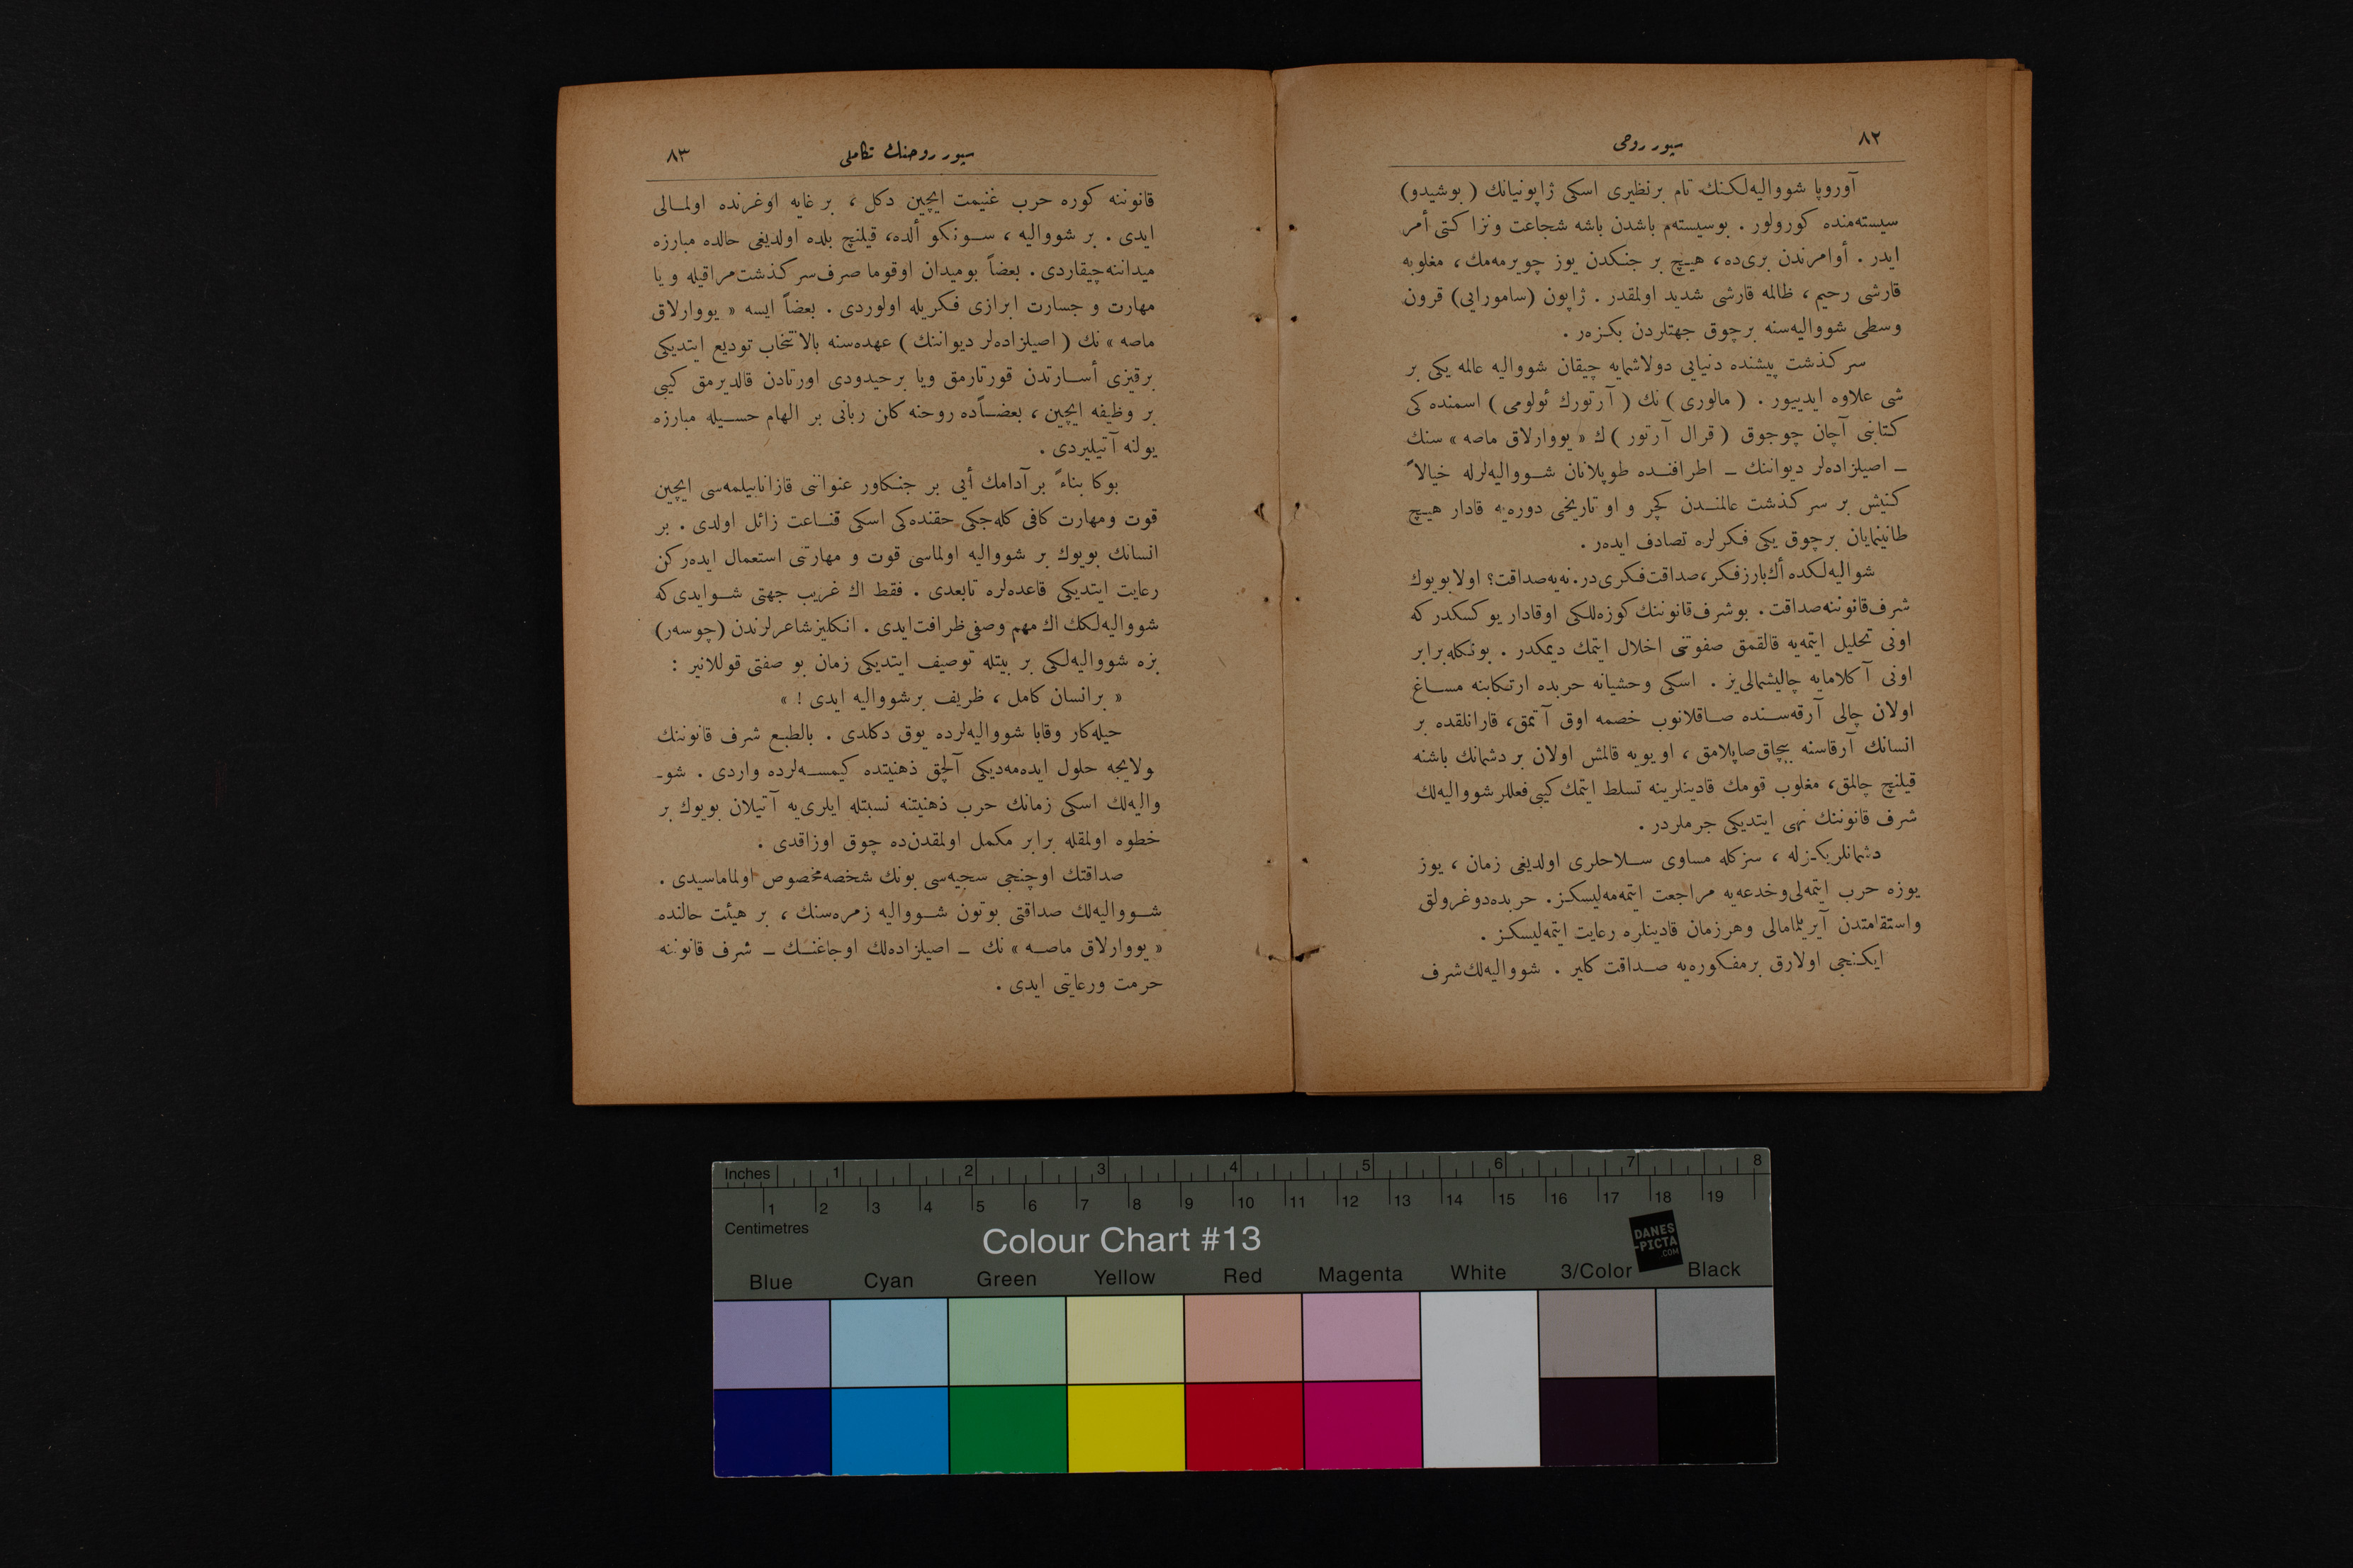 ٨٢
سپور روحی
آوروپا شووالیه‌لكنك تام برنظیری اسكی ژاپونیانك ( بوشیدو )
سیسته‌منده كورولور . بوسیسته‌م باشدن باشه شجاعت ونزاكتی أمر
ایدر . أوامرندن بری‌ده، هیچ بر جنكدن یوز چویرمه‌مك ، مغلوبه
قارشی رحیم ، ظالمه قارشی شدید اولمقدر . ژاپون (سامورایی) قرون
وسطی شووالیه‌سنه برچوق جهتلردن بكزه‌ر .
سركذشت پیشنده دنیایی دولاشمایه چیقان شووالیه عالمه یكی بر
شی علاوه ایدییور . ( مالوری ) نك ( آرتورك ئولومی ) اسمنده‌كی
كتابنی آچان چوجوق ( قرال آرتور ) ك « یووارلاق ماصه » سنك
ـ اصیلزاده‌لر دیواننك ـ اطرافنده طوپلانان شووالیه‌لرله خیالاً
كنیش بر سركذشت عالمندن كچر و او تاریخی دوره‌یه قادار هیچ
طانینمایان برچوق یكی فكرلره تصادف ایده‌ر .
شوالیه‌لكده أك بارز فكر، صداقت فكری‌در. نه‌یه صداقت؟ اولا بویوك
شرف قانوننه صداقت. بوشرف قانوننك كوزه‌للكی اوقادار یوكسكدركه
اونی تحلیل ایتمه‌یه قالقمق صفوتنی اخلال ایتمك دیمكدر . بونكله برابر
اونی آكلامایه چالیشمالی‌یز . اسكی وحشیانه حربده ارتكابنه مساغ
اولان چالی آرقه‌سنده صاقلانوب خصمه اوق آتمق، قارانلقده بر
انسانك آرقاسنه بیچاق صاپلامق ، اویویه قالمش اولان بر دشمانك باشنه
قیلنچ چالمق، مغلوب قومك قادینلرینه تسلط ایتمك كیبی فعللر شووالیه‌لك
شرف قانوننك نهی ایتدیكی جرملردر .
دشمانلریكزله ، سزكله مساوی سلاحلری اولدیغی زمان ، یوز
یوزه حرب ایتمه‌لی وخدعه‌یه مراجعت ایتمه‌مه‌لیسكز. حربده دوغرولق
واستقامتدن آیریلمامالی وهرزمان قادینلره رعایت ایتمه‌لیسكز .
ایكنجی اولارق برمفكوره‌یه صداقت كلیر . شووالیه‌لك شرف
سپور روحنك تكاملی
٨٣
قانوننه كوره حرب غنیمت ایچین دكل ، بر غایه اوغرنده اولمالی
ایدی . بر شووالیه ، سونكو ألده، قیلنچ بلده اولدیغی حالده مبارزه
میداننه چیقاردی . بعضاً بومیدان اوقوما صرف سركذشت مراقیله ویا
مهارت و جسارت ابرازی فكریله اولوردی . بعضاً ایسه « یووارلاق
ماصه » نك ( اصیلزاده‌لر دیواننك ) عهده‌سنه بالانتخاب تودیع ایتدیكی
برقیزی أسارتدن قورتارمق ویا برحیدودی اورتادن قالدیرمق كیبی
بر وظیفه ایچین ، بعضاًده روحنه كان ربانی بر الهام حسیله مبارزه
یولنه آتیلیردی .
بوكا بناءً بر آدامك أیی بر جنكاور عنواننی قازانابیلمه‌سی ایچین
قوت ومهارت كافی كله‌جكی حقنده‌كی اسكی قناعت زائل اولدی . بر
انسانك بویوك بر شووالیه اولماسی قوت و مهارتنی استعمال ایده‌ركن
رعایت ایتدیكی قاعده‌لره تابعدی . فقط اك غریب جهتی شوایدی‌كه
شووالیه‌لكك اك مهم وصفی ظرافت ایدی . انكلیز شاعرلرندن (چوسه‌ر)
بزه شووالیه‌لكی بر بیتله توصیف ایتدیكی زمان بو صفتی قوللانیر :
« برانسان كامل ، ظریف برشووالیه ایدی ! »
حیله‌كار وقابا شووالیه‌لرده یوق دكلدی . بالطبع شرف قانوننك
ولایجه حلول ایده‌مه‌دیكی آلچق ذهنیتده كیمسه‌لرده واردی . شو-
والیه‌لك اسكی زمانك حرب ذهنیتنه نسبتله ایلری‌یه آتیلان بویوك بر
خطوه اولمقله برابر مكمل اولمقدن‌ده چوق اوزاقدی .
صداقتك اوچنجی سجیه‌سی بونك شخصه مخصوص اولماماسیدی .
شووالیه‌لك صداقتی بوتون شووالیه زمره‌سنك ، بر هیئت حالنده
« یووارلاق ماصه » نك ـ اصیلزاده‌لك اوجاغنك ـ شرف قانوننه
حرمت ورعایتی ایدی .
Inches 1 2 3 4 5 6 7 8
1 2 3 4 5 6 7 8 9 10 11 12 13 14 15 16 17 18 19
Centimetres
Colour Chart #13
DANES
-PICTA
.COM
Blue Cyan Green Yellow Red Magenta White 3/Color Black